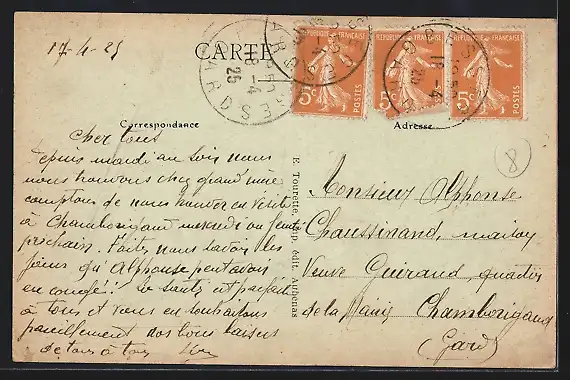 17-4-25
CARTE
RÉPUBLIQUE FRANÇAISE
5c
POSTES
RÉPUBLIQUE FRANÇAISE
5c
POSTES
RÉPUBLIQUE FRANÇAISE
5c
POSTES
GARD
18-4
25
Correspondance
Adresse
8
Cher tous
Depuis mardi au soir nous
nous trouvons chez grand'mère
comptons de nous trouver en visite
à Chamborigaud mercredi ou jeudi
prochain. Faites nous savoir les
jours qu Alphonse peut avoir
en congé!! La santé est parfaite
à tous et vous en souhaitons
pareillement nos bons baisers
de tous à tous
E. Tourrette, imp. édit. Aubenas
Monsieur Alphonse
Chaussinand, maison
Veuve Guiraud, quartier
de la Mairie Chamborigaud
(Gard)